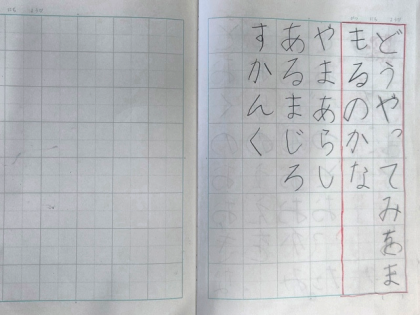 どうやってみをま
もるのかな
やまあらし
あるまじろ
すかんく